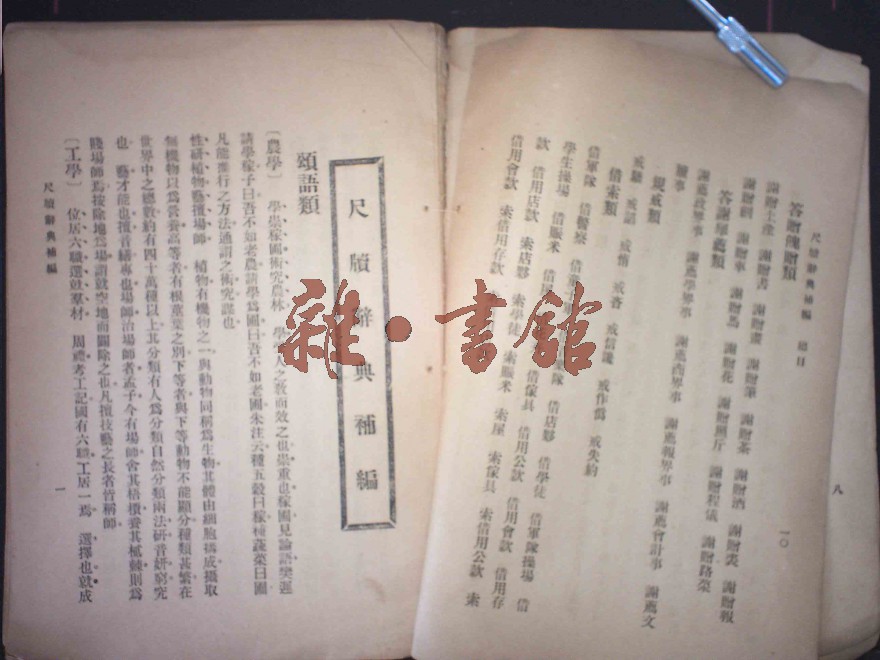 尺牘辭典補編 總目
一〇
答贈餽贈類
謝贈土產 謝贈書 謝贈畫 謝贈筆 謝贈茶 謝贈酒 謝贈裘 謝贈報
謝贈馬 謝贈花 謝贈程儀 謝贈路菜
答謝舉薦類
謝薦政界事 謝薦學界事 謝薦商界事 謝薦報界事 謝薦會計事 謝薦文
牘事
規戒類
戒惰 戒吝 戒信讖 戒作僞 戒失約
借索類
借軍隊 借警察
借店夥 借學徒 借軍隊操場 借
學生操場 借賑米
借傢具 借用公款 借用會款 借用存
款 借用店款 索店夥 索學徒 索賑米 索屋 索傢具 索借用公款 索
借用會款 索借用存款
八
雜·書館
尺牘辭典補編
頌語類
〔農學〕 學崇稼圃術究農林
之敎而效之也崇重也稼圃見論語樊遲
請學稼子曰吾不如老農請學爲圃曰吾不如老圃朱注云種五穀曰稼種蔬菜曰圃
凡能推行之方法通謂之術究謀也
性研植物藝擅場師 植物有機物之一與動物同稱爲生物其體由細胞構成攝取
無機物以爲營養高等者有根莖葉之別下等者與下等動物不能顯分種類甚繁在
世界中之總數約有四十萬種以上其分類有人爲分類自然分類兩法硏音姸窮究
也 藝才能也擅音繕專也場師治場師者孟子今有場師舍其梧檟養其樲棘則爲
賤場師焉按除地爲場謂就空地而闢除之也凡擅技藝之長者皆稱師
〔工學〕 位居六職選就羣材 周禮考工記國有六職工居一焉 選擇也就成
尺牘辭典補編
一